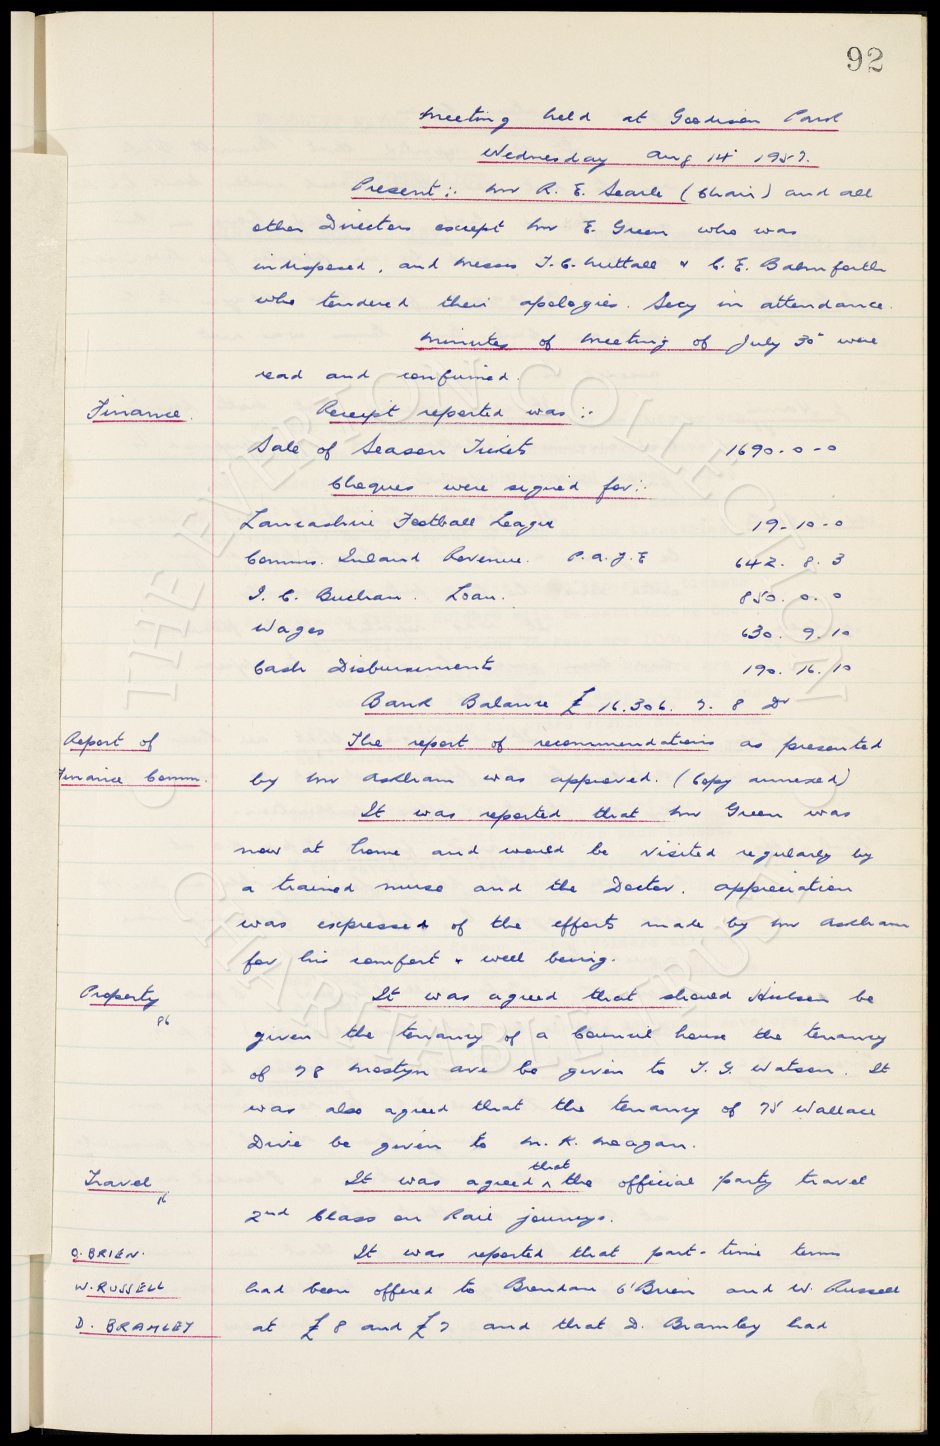 92
Meeting held at Goodison Park
Wednesday Aug 14th 1957.
Present :- Mr R. E. Searle (Chair) and all
other Directors except Mr E. Green who was
indisposed, and Messrs T. C. Nuttall & C. E. Balmforth
who tendered their apologies. Secy in attendance.
Minutes of Meeting of July 30th were
read and confirmed.
Finance. Receipt reported was :-
Sale of Season Tickets 1690-0-0
Cheques were signed for :-
Lancashire Football League 19-10-0
Comms. Inland Revenue. P.A.Y.E 642. 8. 3
I. C. Buchan. Loan. 850. 0. 0
Wages 630. 9. 10
Cash Disbursements 190. 16. 10
Bank Balance £ 16.306. 7. 8 Dr
Report of The report of recommendations as presented
Finance Comm. by Mr Askham was approved. (Copy annexed)
It was reported that Mr Green was
now at home and would be visited regularly by
a trained nurse and the Doctor. Appreciation
was expressed of the efforts made by Mr Askham
for his comfort & well being.
Property It was agreed that should be
86 given the tenancy of a Council house the tenancy
of 78 Mostyn Ave be given to T. G. Watson. It
was also agreed that the tenancy of 75 Wallace
Drive be given to M. K. Meagan.
Travel It was agreed that the official party travel
16 2nd Class on Rail journeys.
O.BRIEN. It was reported that part-time terms
W. RUSSELL had been offered to Brendan O'Brien and W. Russell
D. BRAMLEY at £8 and £7 and that D. Bramley had
THE EVERTON COLLECTION
CHARITABLE TRUST